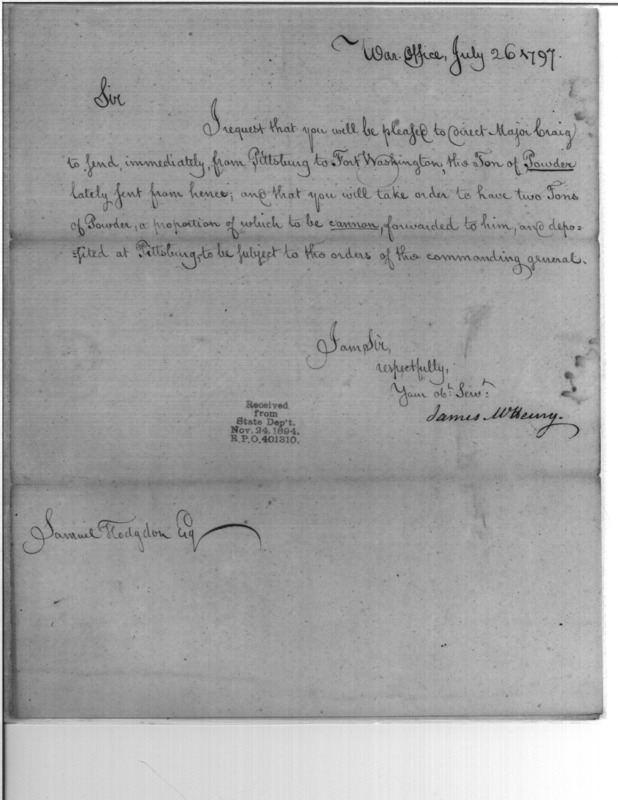 War Office, July 26 1797.
Sir
I request that you will be pleased to direct Major Craig
to send, immediately, from Pittsburg to Fort Washington, the Ton of Powder
lately sent from hence; and that you will take order to have two Tons
of Powder, a proportion of which to be cannon, forwarded to him, and depo=
=sited at Pittsburg, to be subject to the orders of the commanding general.
I am, Sir,
respectfully,
Your obt. Servt.
James McHenry.
Received
from
State Dep't.
Nov. 24, 1894.
R.P.O. 401310.
Samuel Hodgdon Esq